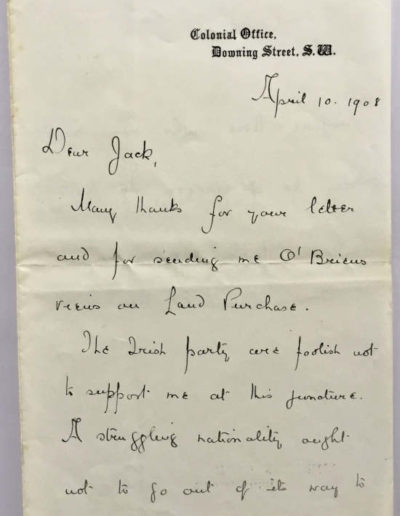 Colonial Office,
Downing Street, S.W.
April 10. 1908
Dear Jack,
Many thanks for your letter
and for sending me O'Briens
views on Land Purchase.
The Irish party are foolish not
to support me at this juncture.
A struggling nationality ought
not to go out of its way to